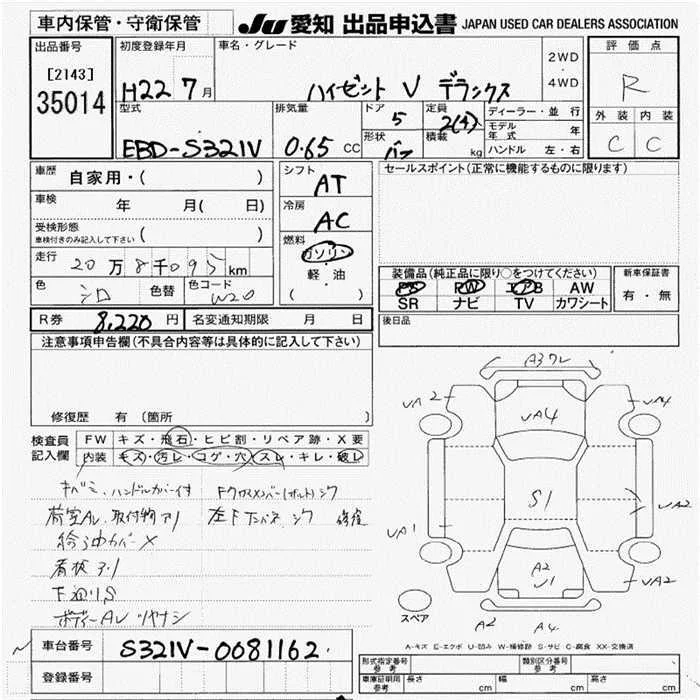 車内保管・守衛保管
JU 愛知 出品申込書 JAPAN USED CAR DEALERS ASSOCIATION
出品番号
[2143]
35014
初度登録年月
H22 7月
車名・グレード
ハイゼット V デラックス
2WD
4WD
評価点
R
外装 内装
C C
型式
EBD-S321V
排気量
0.65 CC
ドア
5
形状
バン
定員
2(4)
積載
kg
ディーラー・並行
モデル年式 年
ハンドル 左・右
車歴
自家用・( )
車検
年 月( 日)
受検形態
車検付きのみ記入して下さい ( )
走行
20万8千095km
色
シロ
色替
色コード
W20
シフト
AT
冷房
AC
燃料
ガソリン
軽・油
( )
セールスポイント(正常に機能するものに限ります)
装備品(純正品に限り○をつけてください)
PS PW エアB AW
SR ナビ TV カワシート
新車保証書
有・無
R券 8,220円
名変通知期限 月 日
後日品
注意事項申告欄(不具合内容等は具体的に記入して下さい)
修復歴 有 (箇所 )
検査員
記入欄
FW キズ・飛石・ヒビ割・リペア跡・X要
内装 キズ・汚レ・コゲ・穴・スレ・キレ・破レ
キバミ、ハンドルカバー付
荷室AU、取付物アリ
下廻りS
A3
UA2
UA4
UA4
S1
UA2
UA1
A2
U1
UA2
A2
A4
スペア
A-キズ E-エクボ U-凹み W-補修跡 S-サビ C-腐食 XX-交換済
車台番号
S321V-0081162
登録番号
形式指定番号
参考
類別区分番号
参考
車庫証明用
参考
長さ cm
幅 cm
高さ cm